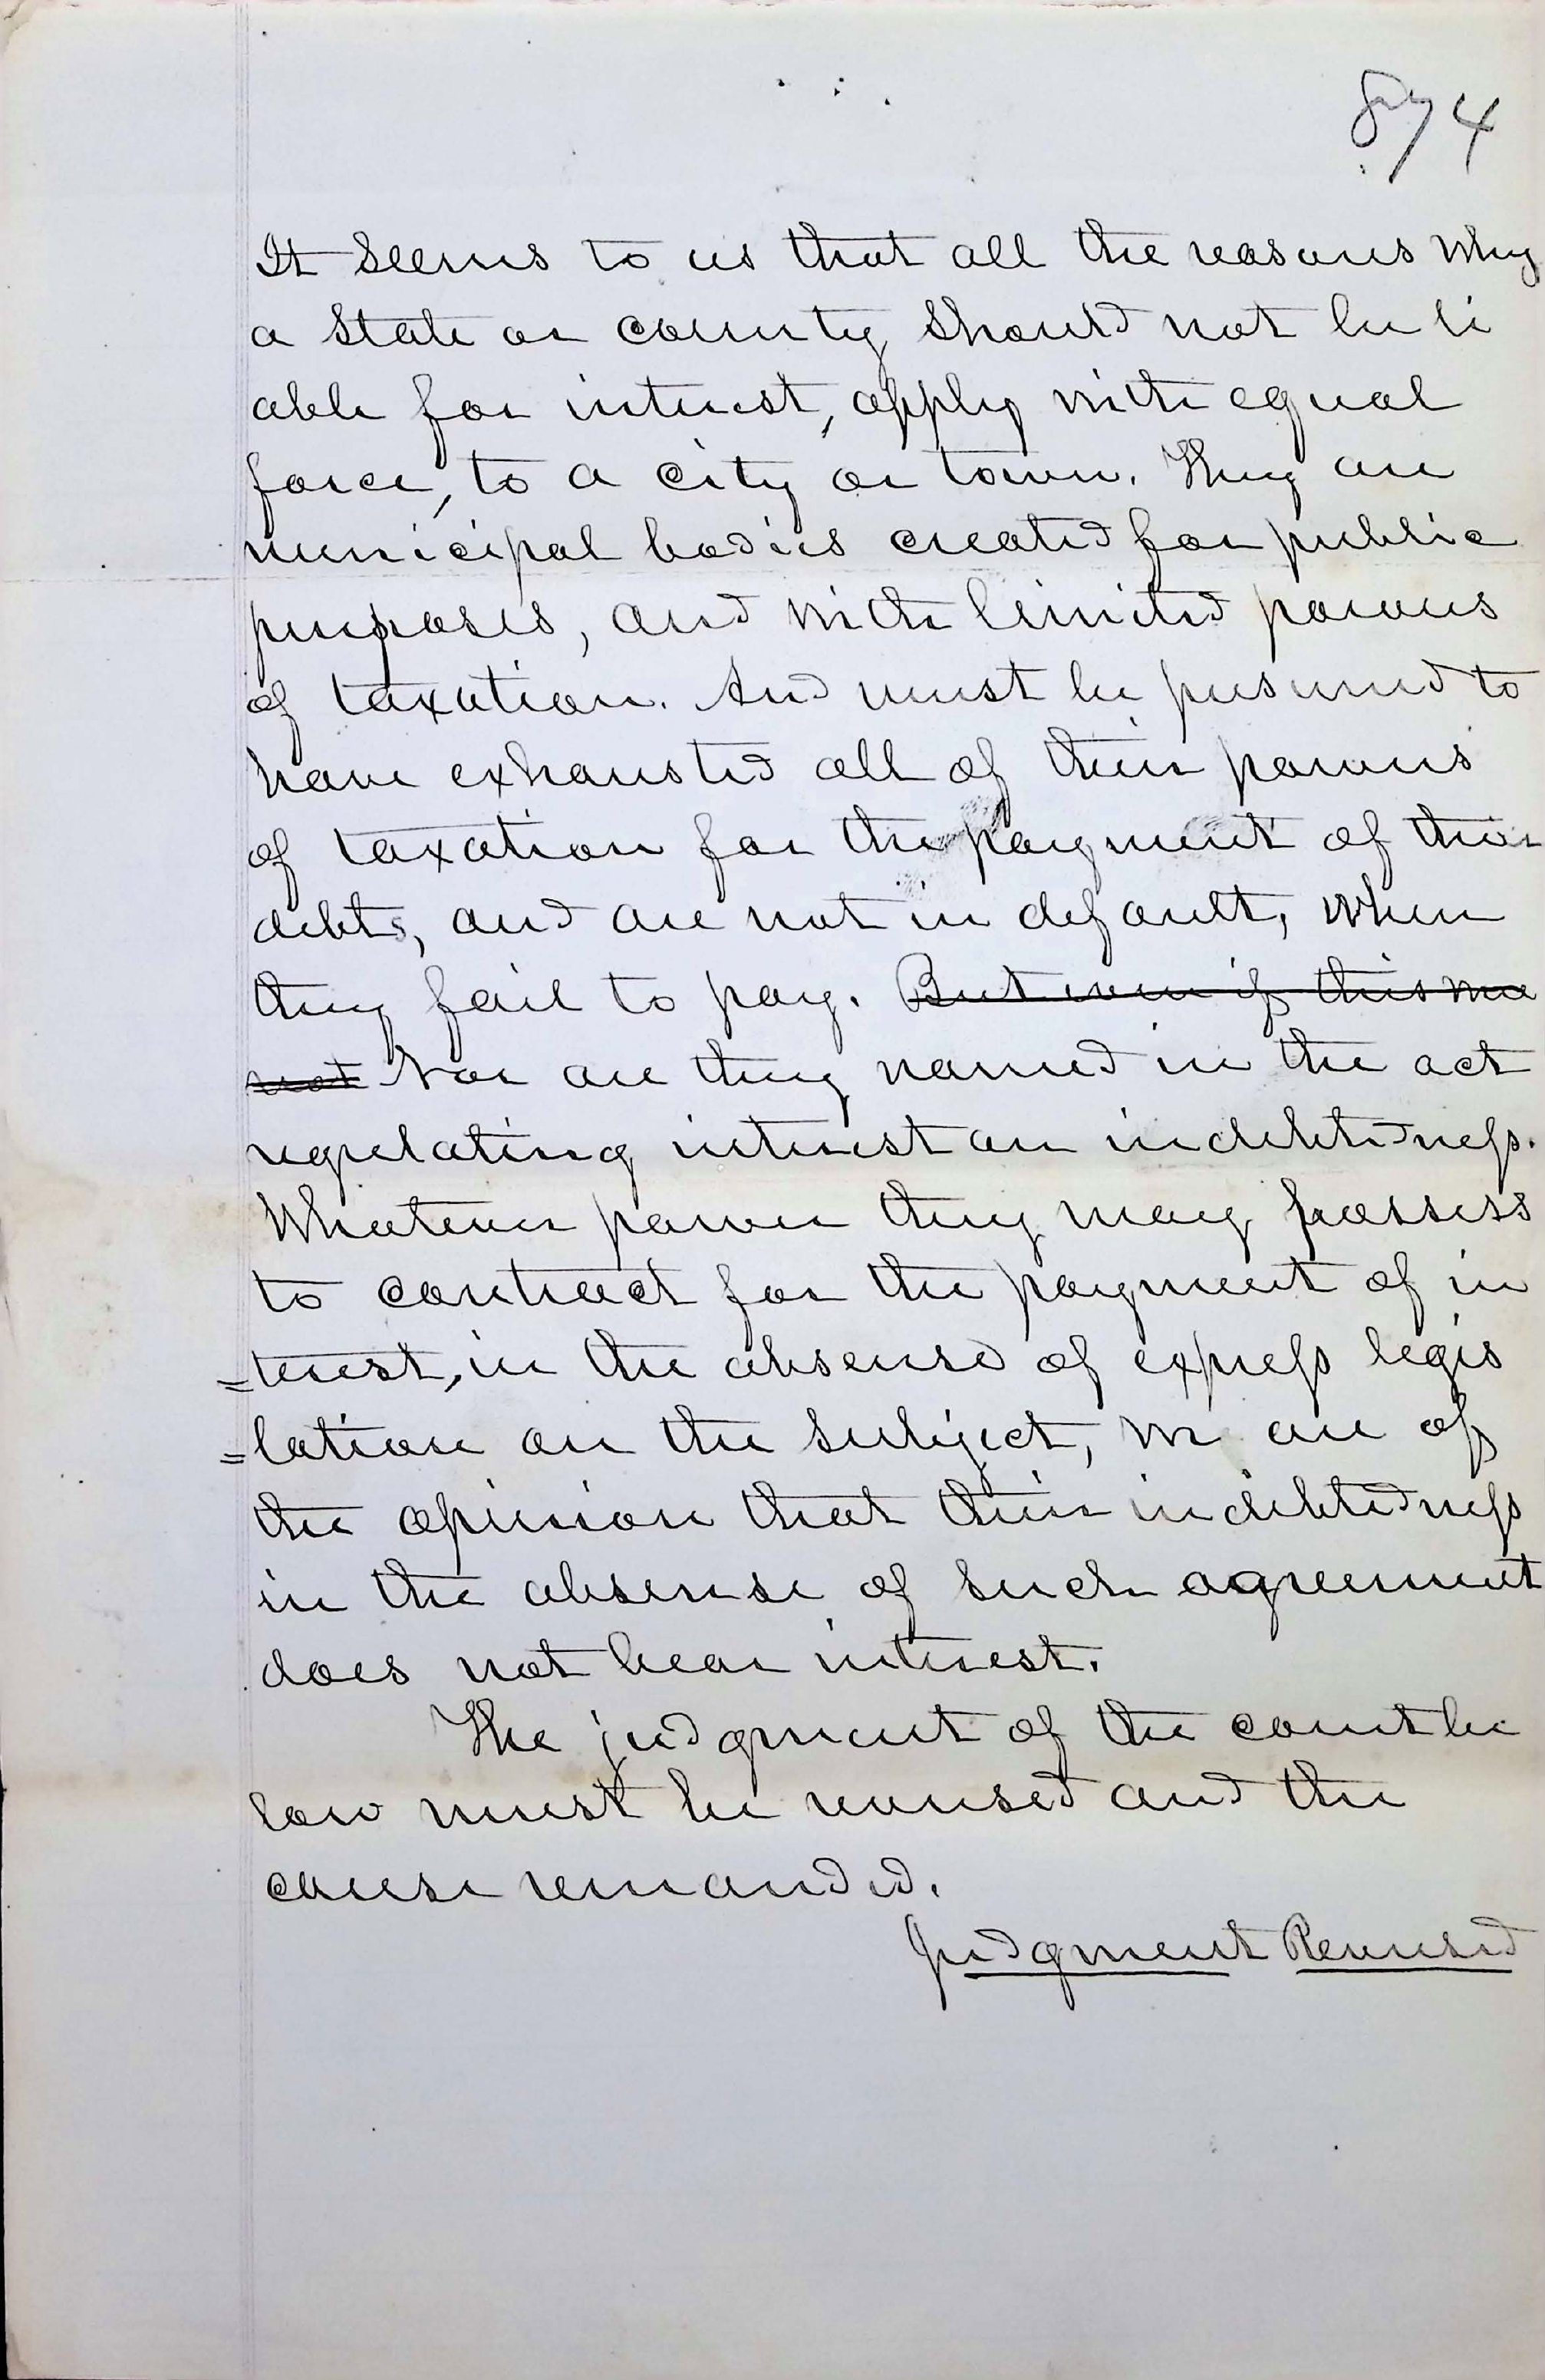 874
It seems to us that all the reasons why
a State or county should not be li
able for interest, apply with equal
force, to a city or town. They are
municipal bodies created for public
purposes, and with limited powers
of taxation. And must be presumed to
have exhausted all of their powers
of taxation for the payment of their
debts, and are not in default, when
they fail to pay. But even if this was
not Nor are they named in the act
regulating interest on indebtedness.
Whatever power they may possess
to contract for the payment of in
=terest, in the absense of express legis
=lation on the subject, we are of
the opinion that their indebtedness
in the absense of such agreement
does not bear interest.
The judgment of the court be
low must be reversed and the
cause remanded.
Judgment Reversed